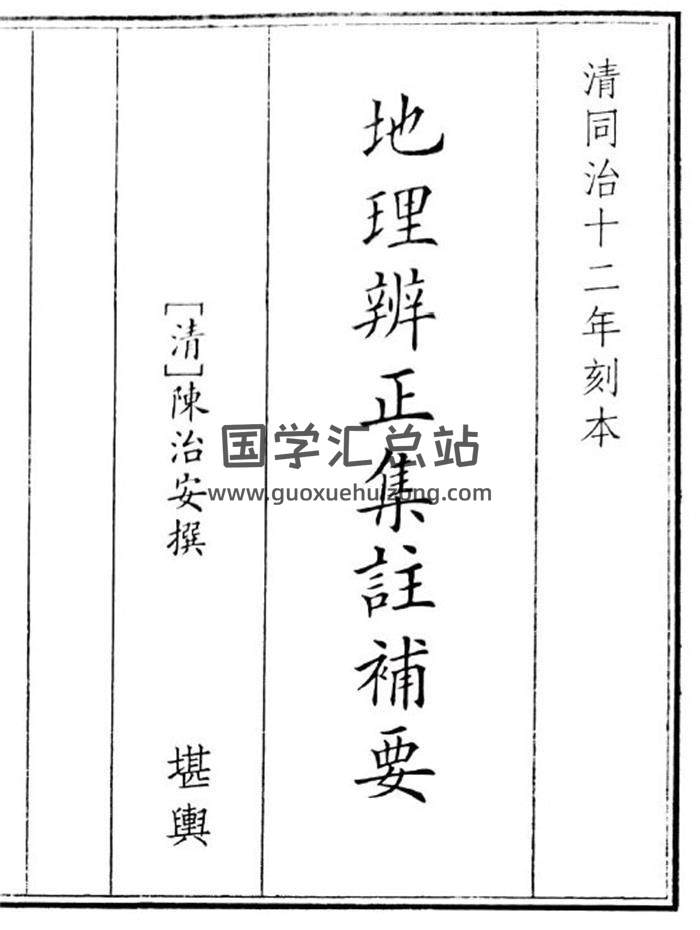 清同治十二年刻本
地理辨正集註補要
[清]陳治安撰
堪輿
国学汇总站
www.guoxuehuizong.com